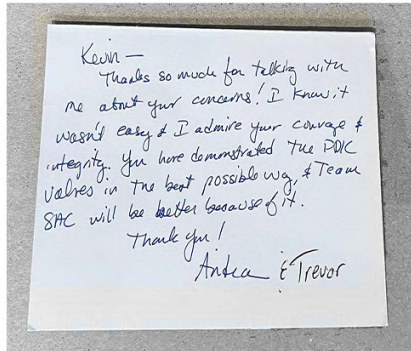 Kevin —
Thanks so much for talking with
me about your concerns! I know it
wasn't easy & I admire your courage &
integrity. You have demonstrated the PDIC
values in the best possible way, & Team
SAC will be better because of it.
Thank you!
Andrea & Trevor